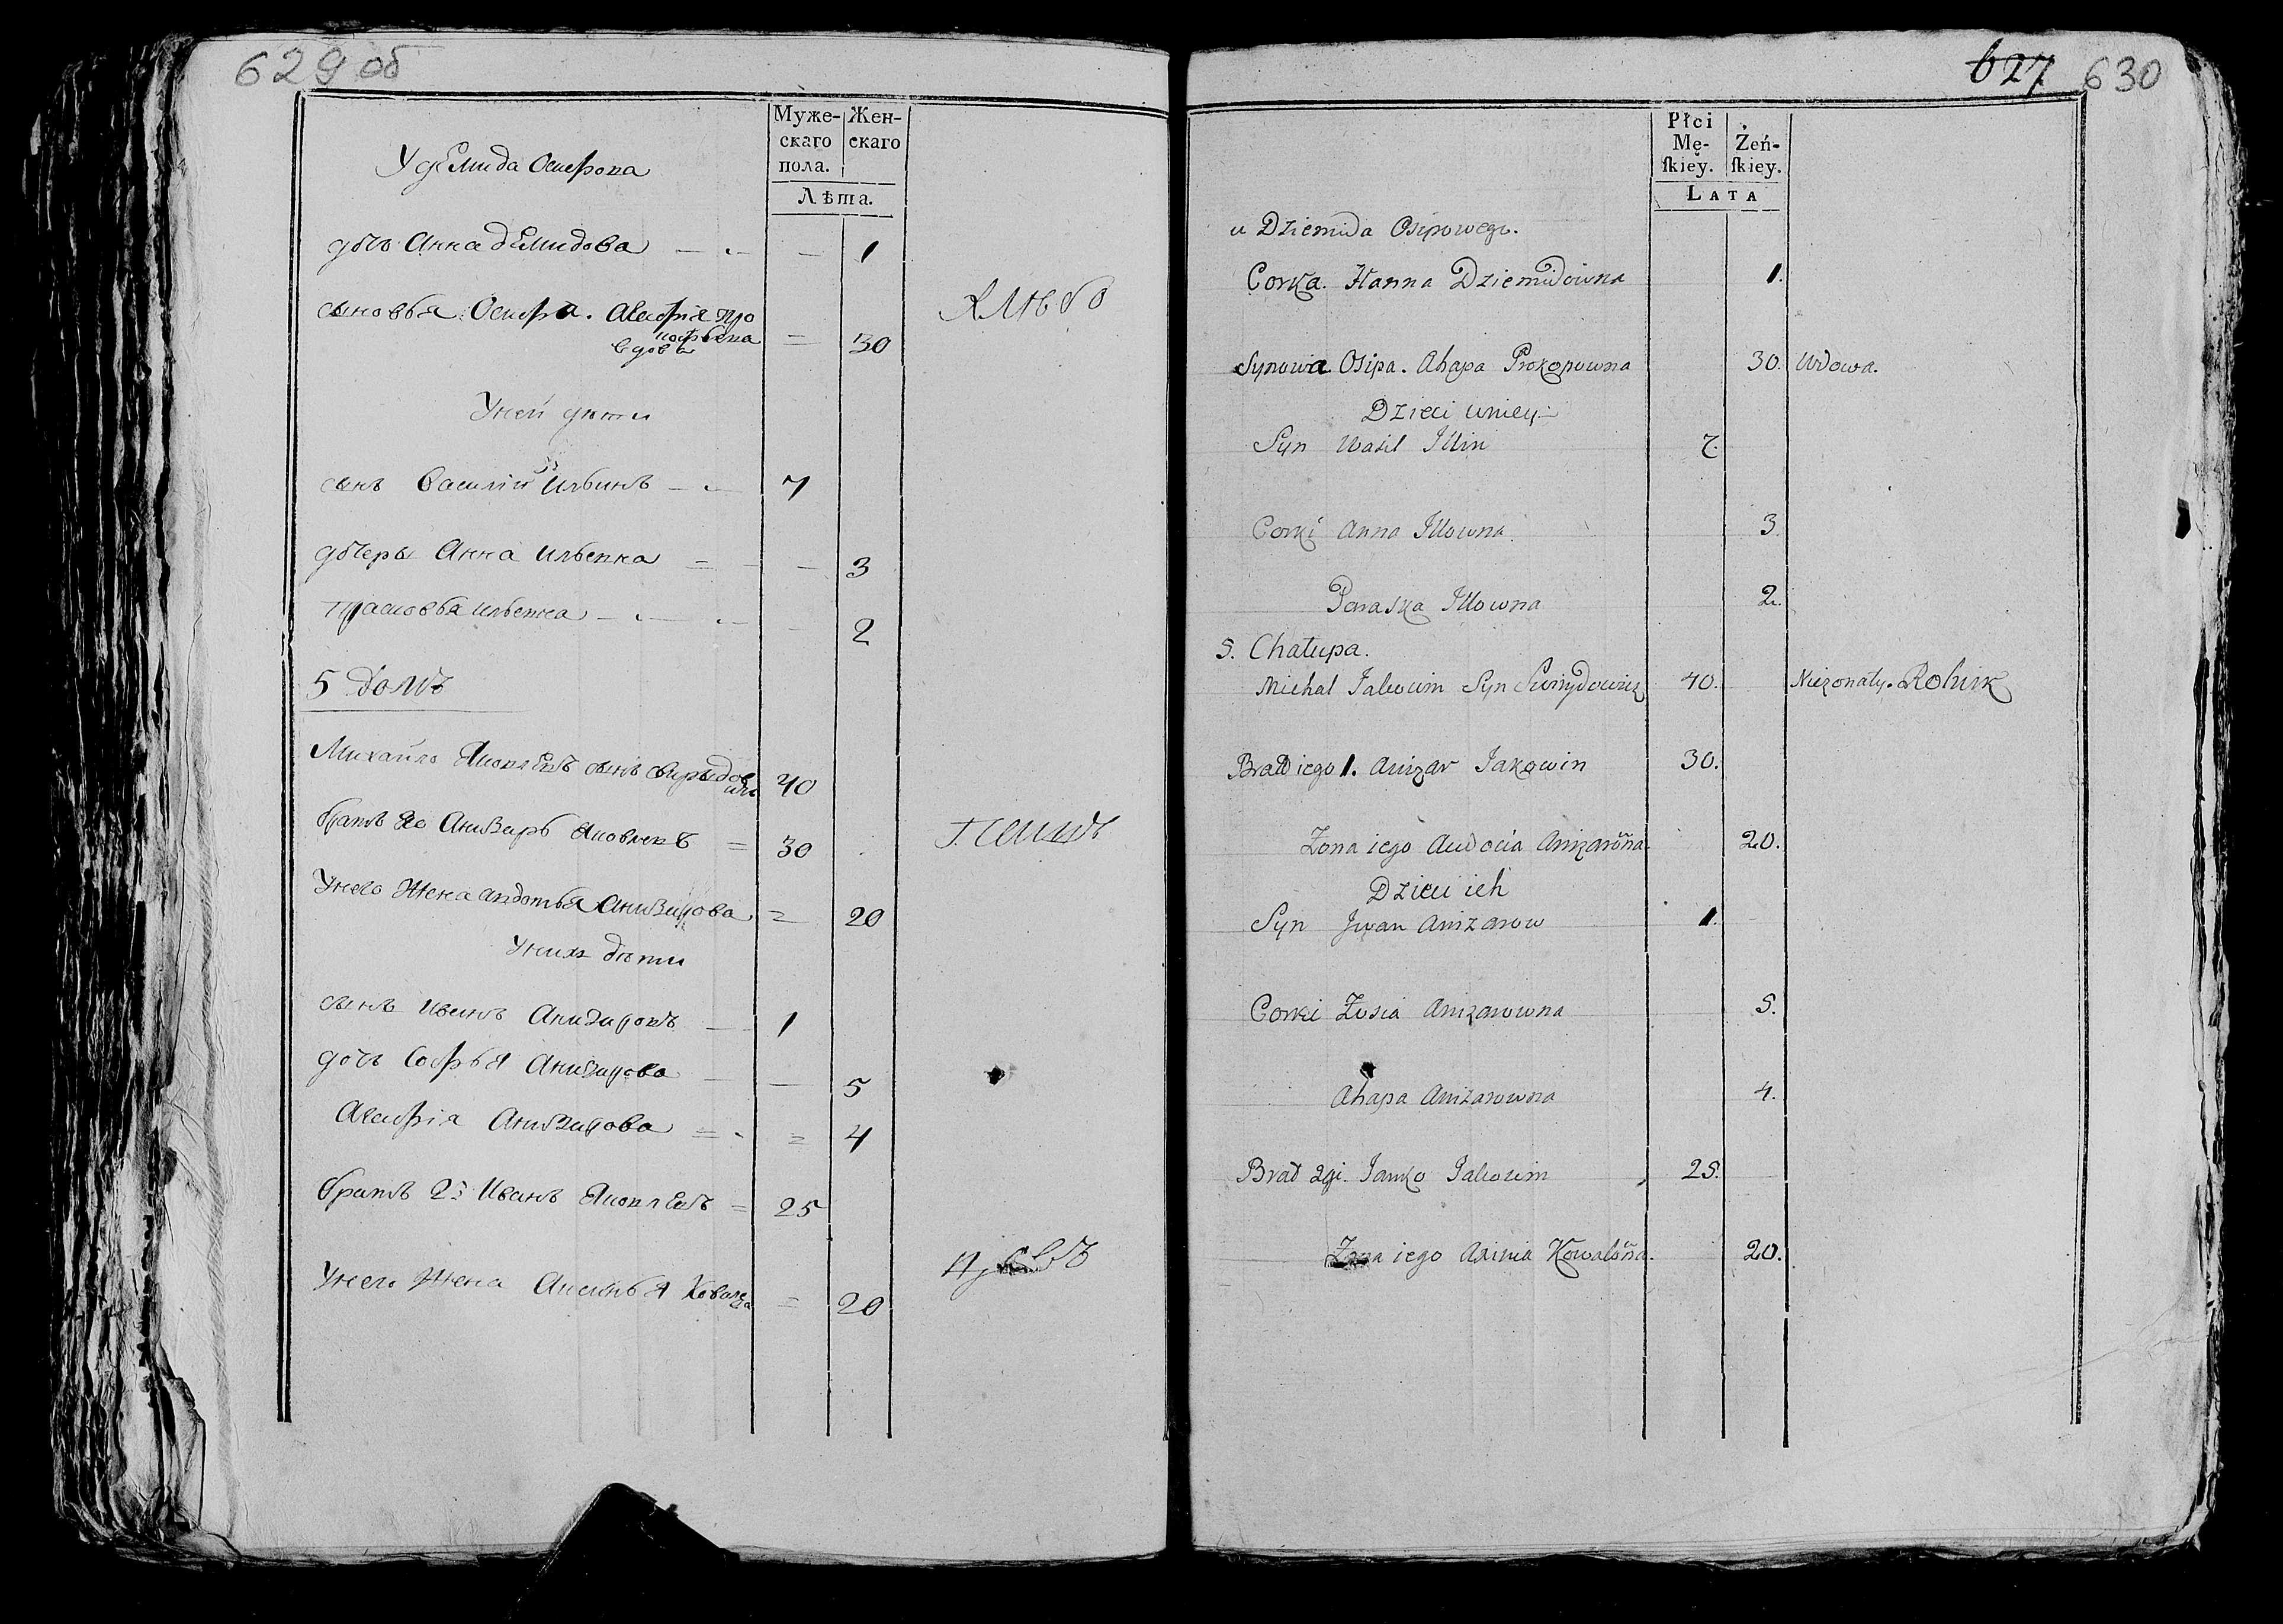 629 об
Муже-
скаго
пола.
Жен-
скаго
Лѣта.
У демида Осифова
дочь Анна демидова 1
Осифа. Агафiя про
кофьева
вдова 30
Уней дѣти
сынъ Василий Ильинъ 7
дочеры Анна Ильевна 3
Прасковья Ильевна 2
5 домъ
Михайло Яковлевъ сынъ свирыдов
ичъ 40
братъ его Анизаръ Яковлевъ 30
Унего жена Авдотья Анизарова 20
Унихъ дѣти
сынъ Иванъ Анизаровъ 1
дочь Софья Анизарова 5
Агафiя Анизарова 4
братъ 2й Иванъ Яковлевъ 25
Унего жена Аксинья 20
627 630
Płci
Mę-
skiey.
Żeń-
skiey.
LATA
u Dziemida Osipowego.
Corka. Hanna Dziemidowna 1.
Synowa Osipa. Ahapa Prokopowna 30. Wdowa.
Dzieci uniey
Syn Wasil Illin 7.
Corki Anna Illowna 3.
Paraska Illowna 2.
5. Chałupa.
Michał Jakowin Syn Swirydowicz 40. Nieżonaty. Rolnik
Brat iego 1. Anizar Jakowin 30.
Żona iego Audocia Anizarowna 20.
Dzieci ich
Syn Jwan Anizarow 1.
Corki Zosia Anizarowna 5.
Ahapa Anizarowna 4.
Brat 2gi. Janko Jakowin 25.
Żona iego Axinia Kowalowna. 20.